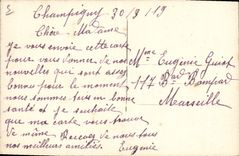 Champigny 30/8/19
Chère Madame
Je vous envoie cette carte
pour vous donner de nos
nouvelles qui sont assez
bonnes pour le moment
nous sommes tous en bonne
santé et je souhaite
que ma carte vous trouve
de même. Recevez de nous tous
nos meilleures amitiés.
Eugénie
Mme Eugénie
117 Bard
Marseille